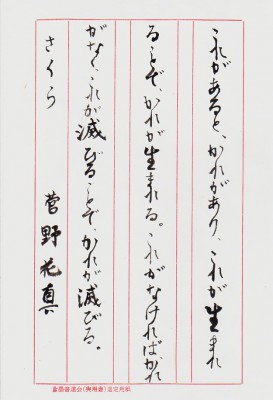 これがあると、かれがあり、これが生まれ
ることで、かれが生まれる。これがなければ、かれ
がなく、これが滅びることで、かれが滅びる。
さくら 菅野花真